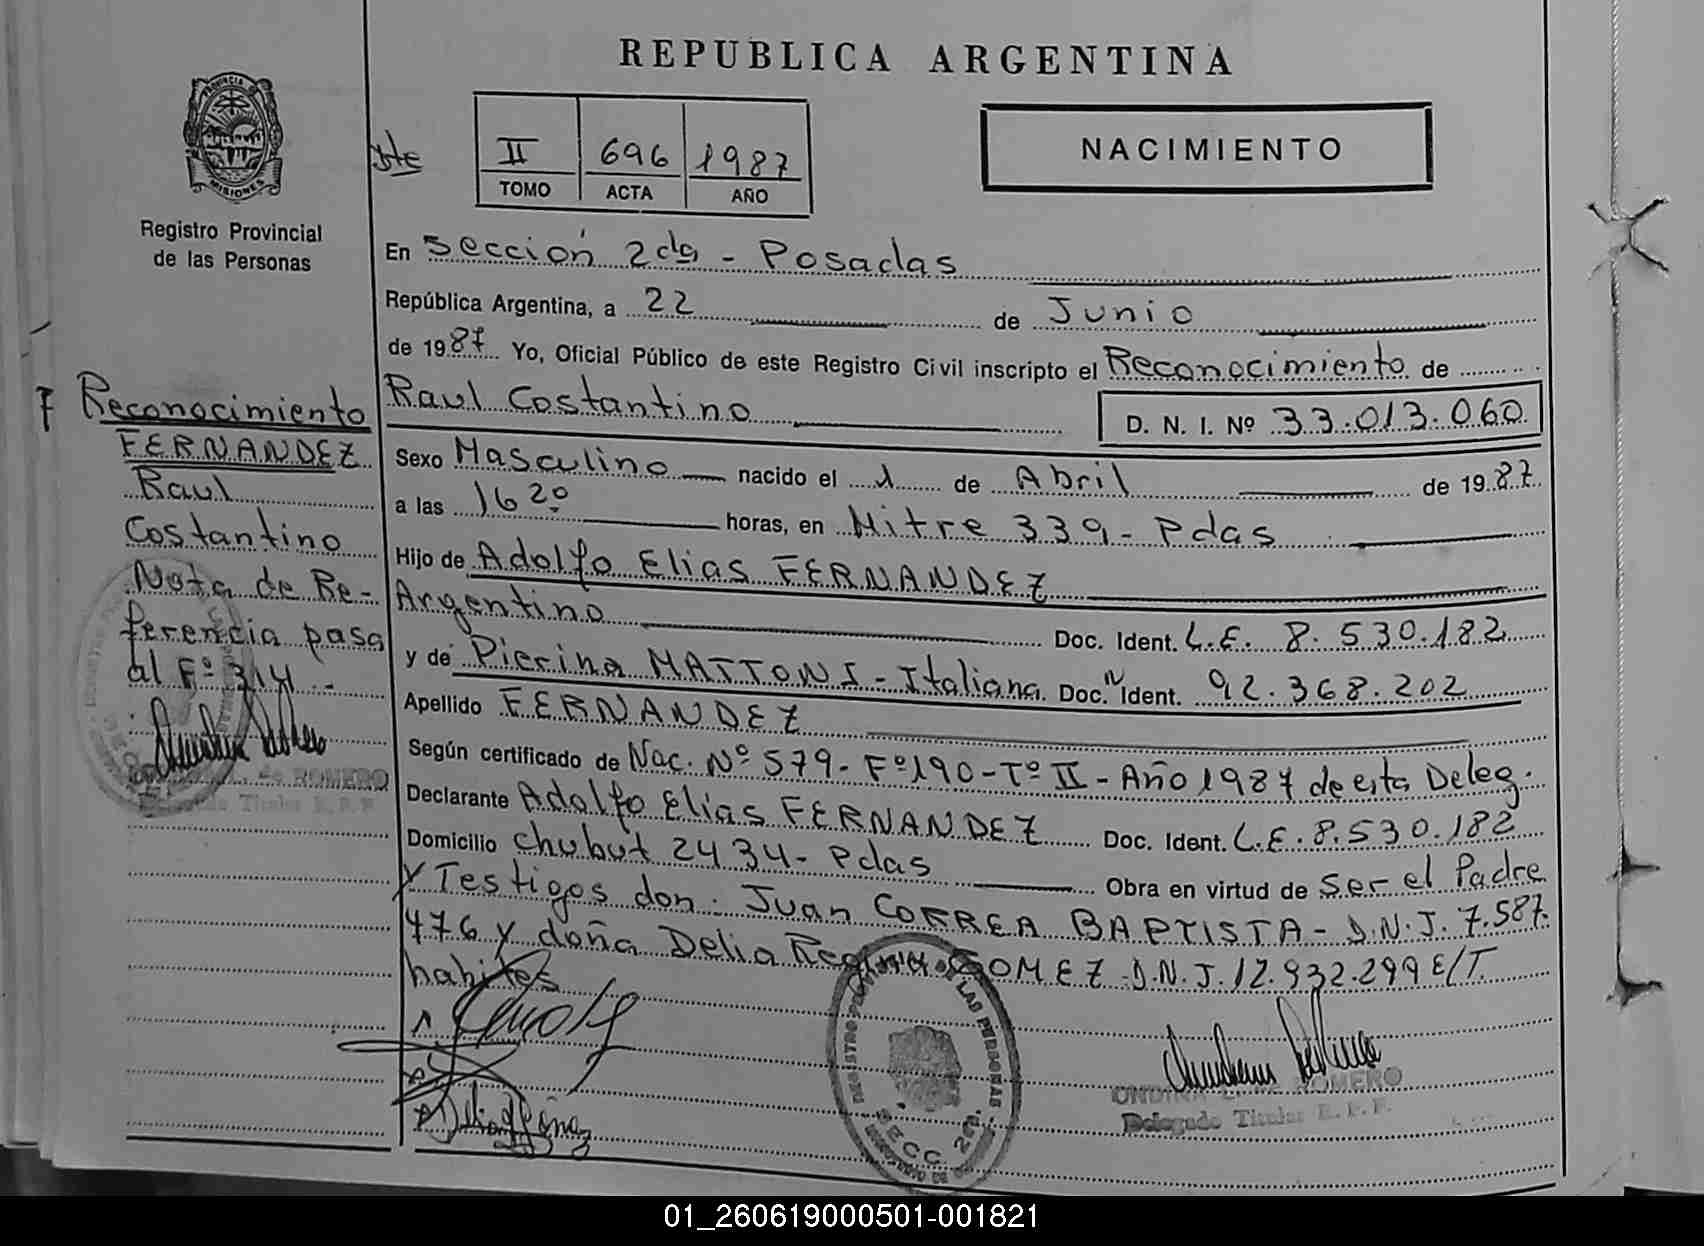 REPUBLICA ARGENTINA
PROVINCIA DE
MISIONES
Registro Provincial
de las Personas
II 696 1987
TOMO ACTA AÑO
NACIMIENTO
En Sección 2da - Posadas
República Argentina, a 22 de Junio
de 1987 Yo, Oficial Público de este Registro Civil inscripto el Reconocimiento de
Raul Costantino D. N. I. Nº 33.013.060
Sexo Masculino nacido el 1 de Abril de 1987
a las 16 20 horas, en Mitre 339 - Pdas
Hijo de Adolfo Elias FERNANDEZ
Argentino Doc. Ident. L.E. 8.530.182
y de Pierina MATTONI - Italiana Doc. Ident. 92.368.202
Apellido FERNANDEZ
Según certificado de Nac. Nº 579 - Fº 190 - Tº II - Año 1987 de esta Deleg.
Declarante Adolfo Elias FERNANDEZ Doc. Ident. L.E. 8.530.182
Domicilio Chubut 2434 - Pdas Obra en virtud de ser el Padre
y Testigos don. Juan CORREA BAPTISTA - D.N.I. 7.587.
476 y doña Delia Regina GOMEZ D.N.I. 12.932.299 E/T.
habiles
Reconocimiento
FERNANDEZ
Raul
Costantino
Nota de Re-
ferencia pasa
al Fº 314
de ROMERO
Delegado Titular R.P.P.
LAS PERSONAS
SECC. 2da.
ROMERO
Delegado Titular R.P.P.
01_260619000501-001821